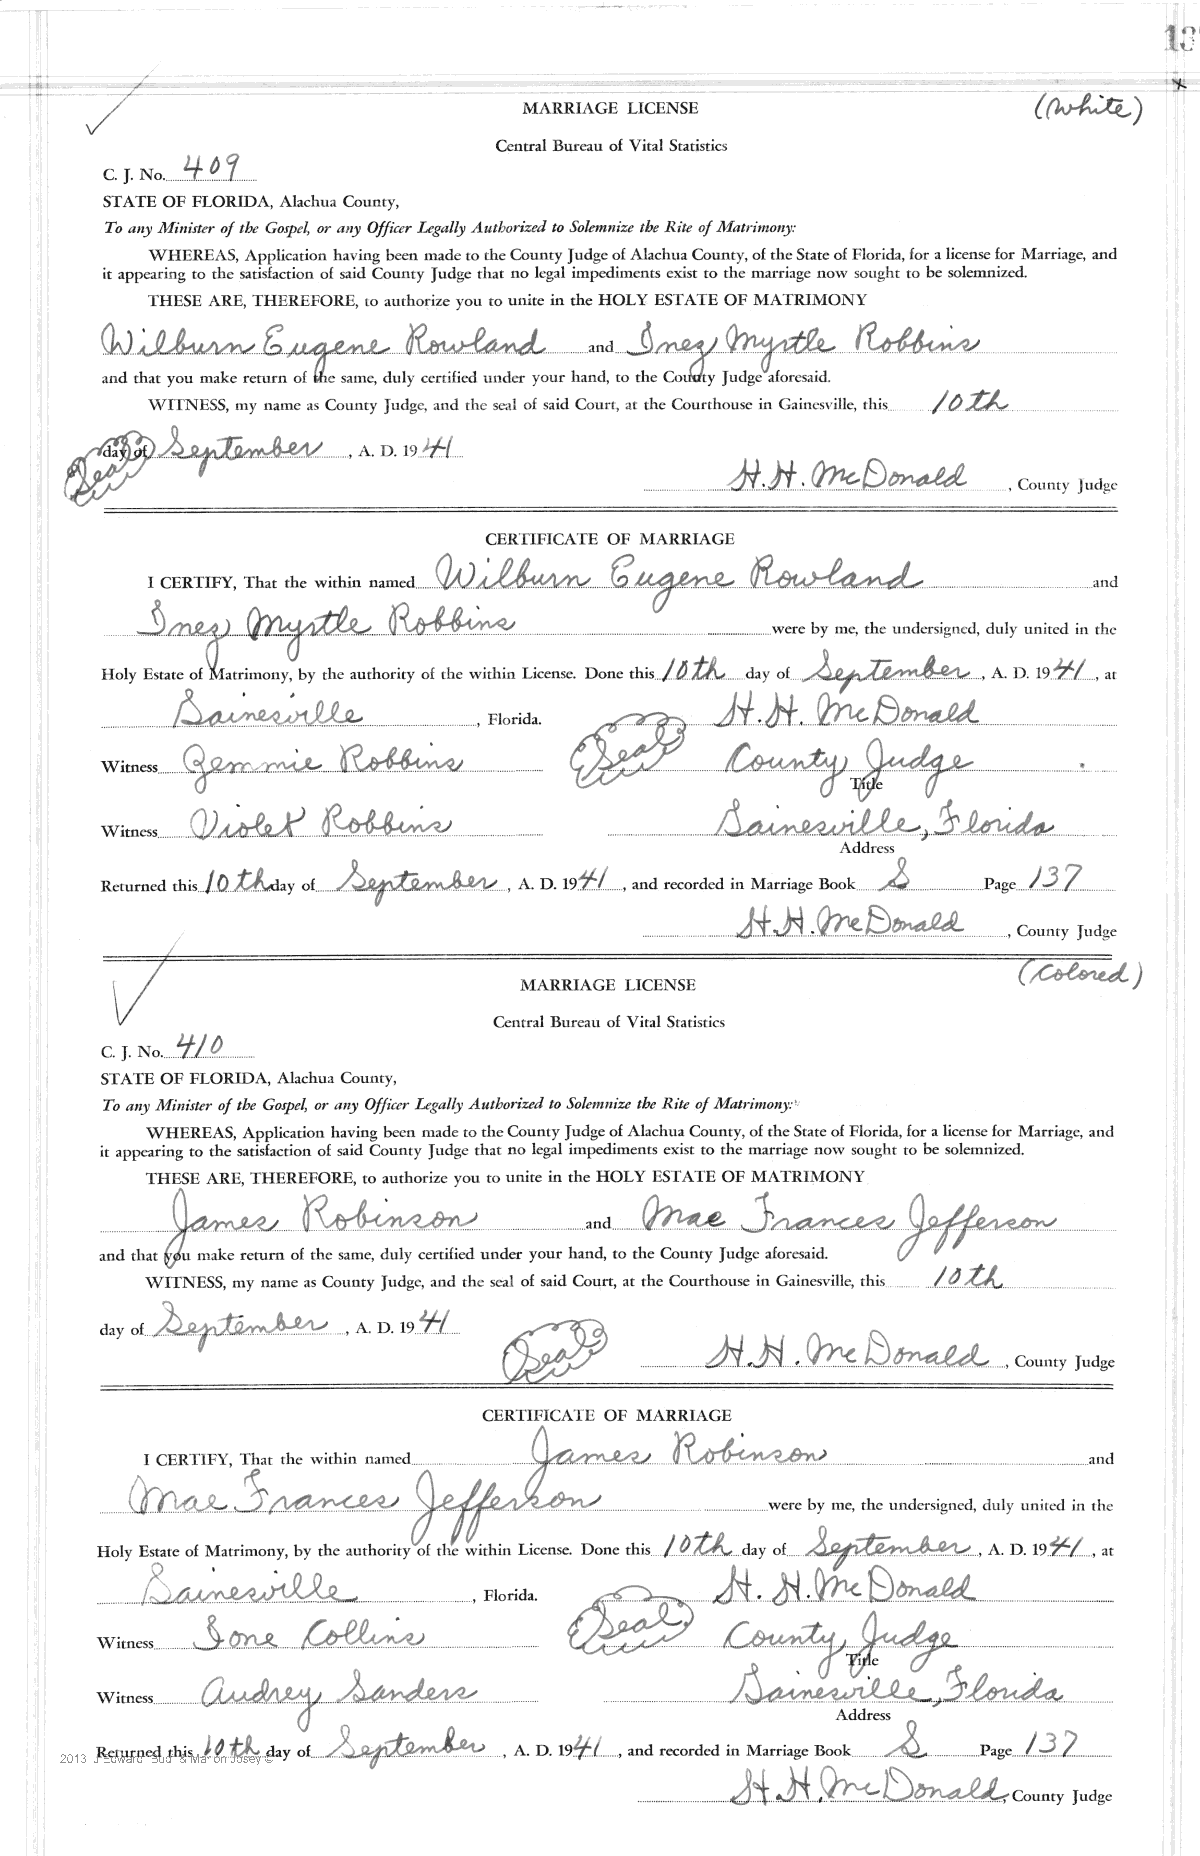 13
x
MARRIAGE LICENSE (White)
Central Bureau of Vital Statistics
C. J. No. 409
STATE OF FLORIDA, Alachua County,
To any Minister of the Gospel, or any Officer Legally Authorized to Solemnize the Rite of Matrimony:
WHEREAS, Application having been made to the County Judge of Alachua County, of the State of Florida, for a license for Marriage, and
it appearing to the satisfaction of said County Judge that no legal impediments exist to the marriage now sought to be solemnized.
THESE ARE, THEREFORE, to authorize you to unite in the HOLY ESTATE OF MATRIMONY
Wilburn Eugene Rowland and Inez Myrtle Robbins
and that you make return of the same, duly certified under your hand, to the County Judge aforesaid.
WITNESS, my name as County Judge, and the seal of said Court, at the Courthouse in Gainesville, this 10th
day of September, A. D. 1941
(Seal) H. H. McDonald, County Judge
CERTIFICATE OF MARRIAGE
I CERTIFY, That the within named Wilburn Eugene Rowland and
Inez Myrtle Robbins were by me, the undersigned, duly united in the
Holy Estate of Matrimony, by the authority of the within License. Done this 10th day of September, A. D. 1941, at
Gainesville, Florida. H. H. McDonald
Witness Zemmie Robbins (Seal) County Judge
Title
Witness Violet Robbins Gainesville, Florida
Address
Returned this 10th day of September, A. D. 1941, and recorded in Marriage Book S Page 137
H. H. McDonald, County Judge
(Colored)
MARRIAGE LICENSE
Central Bureau of Vital Statistics
C. J. No. 410
STATE OF FLORIDA, Alachua County,
To any Minister of the Gospel, or any Officer Legally Authorized to Solemnize the Rite of Matrimony:
WHEREAS, Application having been made to the County Judge of Alachua County, of the State of Florida, for a license for Marriage, and
it appearing to the satisfaction of said County Judge that no legal impediments exist to the marriage now sought to be solemnized.
THESE ARE, THEREFORE, to authorize you to unite in the HOLY ESTATE OF MATRIMONY
James Robinson and Mae Frances Jefferson
and that you make return of the same, duly certified under your hand, to the County Judge aforesaid.
WITNESS, my name as County Judge, and the seal of said Court, at the Courthouse in Gainesville, this 10th
day of September, A. D. 1941
(Seal) H. H. McDonald, County Judge
CERTIFICATE OF MARRIAGE
I CERTIFY, That the within named James Robinson and
Mae Frances Jefferson were by me, the undersigned, duly united in the
Holy Estate of Matrimony, by the authority of the within License. Done this 10th day of September, A. D. 1941, at
Gainesville, Florida. H. H. McDonald
Witness Ione Collins (Seal) County Judge
Title
Witness Audrey Sanders Gainesville, Florida
Address
Returned this 10th day of September, A. D. 1941, and recorded in Marriage Book S Page 137
2013 J Edward "Bud" & Marion Josey ©
H. H. McDonald, County Judge